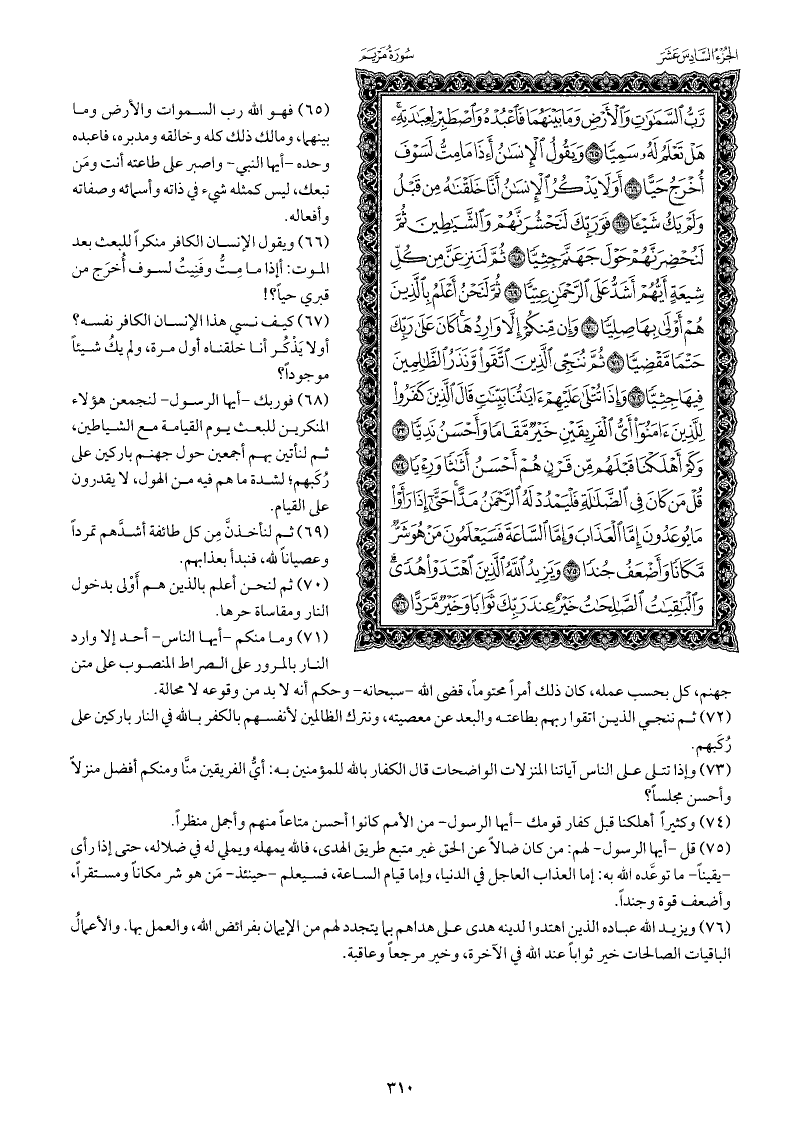 الجزء السادس عشر
سورة مريم
رَّبُّ ٱلسَّمَٰوَٰتِ وَٱلْأَرْضِ وَمَا بَيْنَهُمَا فَٱعْبُدْهُ وَٱصْطَبِرْ لِعِبَٰدَتِهِۦۚ
هَلْ تَعْلَمُ لَهُۥ سَمِيًّا ٦٥ وَيَقُولُ ٱلْإِنسَٰنُ أَءِذَا مَا مِتُّ لَسَوْفَ
أُخْرَجُ حَيًّا ٦٦ أَوَلَا يَذْكُرُ ٱلْإِنسَٰنُ أَنَّا خَلَقْنَٰهُ مِن قَبْلُ
وَلَمْ يَكُ شَيْـًٔا ٦٧ فَوَرَبِّكَ لَنَحْشُرَنَّهُمْ وَٱلشَّيَٰطِينَ ثُمَّ
لَنُحْضِرَنَّهُمْ حَوْلَ جَهَنَّمَ جِثِيًّا ٦٨ ثُمَّ لَنَنزِعَنَّ مِن كُلِّ
شِيعَةٍ أَيُّهُمْ أَشَدُّ عَلَى ٱلرَّحْمَٰنِ عِتِيًّا ٦٩ ثُمَّ لَنَحْنُ أَعْلَمُ بِٱلَّذِينَ
هُمْ أَوْلَىٰ بِهَا صِلِيًّا ٧٠ وَإِن مِّنكُمْ إِلَّا وَارِدُهَاۚ كَانَ عَلَىٰ رَبِّكَ
حَتْمًا مَّقْضِيًّا ٧١ ثُمَّ نُنَجِّى ٱلَّذِينَ ٱتَّقَوا۟ وَّنَذَرُ ٱلظَّٰلِمِينَ
فِيهَا جِثِيًّا ٧٢ وَإِذَا تُتْلَىٰ عَلَيْهِمْ ءَايَٰتُنَا بَيِّنَٰتٍ قَالَ ٱلَّذِينَ كَفَرُوا۟
لِلَّذِينَ ءَامَنُوٓا۟ أَىُّ ٱلْفَرِيقَيْنِ خَيْرٌ مَّقَامًا وَأَحْسَنُ نَدِيًّا ٧٣
وَكَمْ أَهْلَكْنَا قَبْلَهُم مِّن قَرْنٍ هُمْ أَحْسَنُ أَثَٰثًا وَرِءْيًا ٧٤
قُلْ مَن كَانَ فِى ٱلضَّلَٰلَةِ فَلْيَمْدُدْ لَهُ ٱلرَّحْمَٰنُ مَدًّاۚ حَتَّىٰٓ إِذَا رَأَوْا۟
مَا يُوعَدُونَ إِمَّا ٱلْعَذَابَ وَإِمَّا ٱلسَّاعَةَ فَسَيَعْلَمُونَ مَنْ هُوَ شَرٌّ
مَّكَانًا وَأَضْعَفُ جُندًا ٧٥ وَيَزِيدُ ٱللَّهُ ٱلَّذِينَ ٱهْتَدَوْا۟ هُدًىۗ
وَٱلْبَٰقِيَٰتُ ٱلصَّٰلِحَٰتُ خَيْرٌ عِندَ رَبِّكَ ثَوَابًا وَخَيْرٌ مَّرَدًّا ٧٦
(٦٥) فهو الله رب السموات والأرض وما
بينهما، ومالك ذلك كله وخالقه ومدبره، فاعبده
وحده -أيها النبي- واصبر على طاعته أنت ومَن
تبعك، ليس كمثله شيء في ذاته وأسمائه وصفاته
وأفعاله.
(٦٦) ويقول الإنسان الكافر منكراً للبعث بعد
الموت: أإذا ما مِتُّ وفَنِيتُ لسوف أُخرَج من
قبري حياً؟!
(٦٧) كيف نسي هذا الإنسان الكافر نفسه؟
أولا يَذْكُر أنا خلقناه أول مرة، ولم يكُ شيئاً
موجوداً؟
(٦٨) فوربك -أيها الرسول- لنجمعن هؤلاء
المنكرين للبعث يوم القيامة مع الشياطين،
ثم لنأتين بهم أجمعين حول جهنم باركين على
رُكَبهم؛ لشدة ما هم فيه من الهول، لا يقدرون
على القيام.
(٦٩) ثم لنأخذنَّ مِن كل طائفة أشدَّهم تمرداً
وعصياناً لله، فنبدأ بعذابهم.
(٧٠) ثم لنحن أعلم بالذين هم أَوْلى بدخول
النار ومقاساة حرها.
(٧١) وما منكم -أيها الناس- أحد إلا وارد
النار بالمرور على الصراط المنصوب على متن
جهنم، كل بحسب عمله، كان ذلك أمراً محتوماً، قضى الله -سبحانه- وحكم أنه لا بد من وقوعه لا محالة.
(٧٢) ثم ننجي الذين اتقوا ربهم بطاعته والبعد عن معصيته، ونترك الظالمين لأنفسهم بالكفر بالله في النار باركين على
رُكَبهم.
(٧٣) وإذا تتلى على الناس آياتنا المنزلات الواضحات قال الكفار بالله للمؤمنين به: أيُّ الفريقين منَّا ومنكم أفضل منزلاً
وأحسن مجلساً؟
(٧٤) وكثيراً أهلكنا قبل كفار قومك -أيها الرسول- من الأمم كانوا أحسن متاعاً منهم وأجمل منظراً.
(٧٥) قل -أيها الرسول- لهم: من كان ضالاً عن الحق غير متبع طريق الهدى، فالله يمهله ويملي له في ضلاله، حتى إذا رأى
-يقيناً- ما توعَّده الله به: إما العذاب العاجل في الدنيا، وإما قيام الساعة، فسيعلم -حينئذ- مَن هو شر مكاناً ومستقراً،
وأضعف قوة وجنداً.
(٧٦) ويزيد الله عباده الذين اهتدوا لدينه هدى على هداهم بما يتجدد لهم من الإيمان بفرائض الله، والعمل بها. والأعمالُ
الباقيات الصالحات خير ثواباً عند الله في الآخرة، وخير مرجعاً وعاقبة.
٣١٠